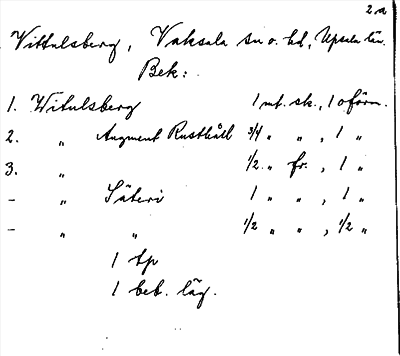 2a
Vittulsberg, Vaksala sn o. hd, Upsala län.
Bek:
1. Witulsberg 1 mt. sk., 1 oförm.
2. „ Augment Rusthåll 3/4 „ „ , 1 „
3. „ 1/2 „ fr., 1 „
- „ Säteri 1 „ „ , 1 „
- „ „ 1/2 „ „ , 1/2 „
1 tp
1 beb. läg.